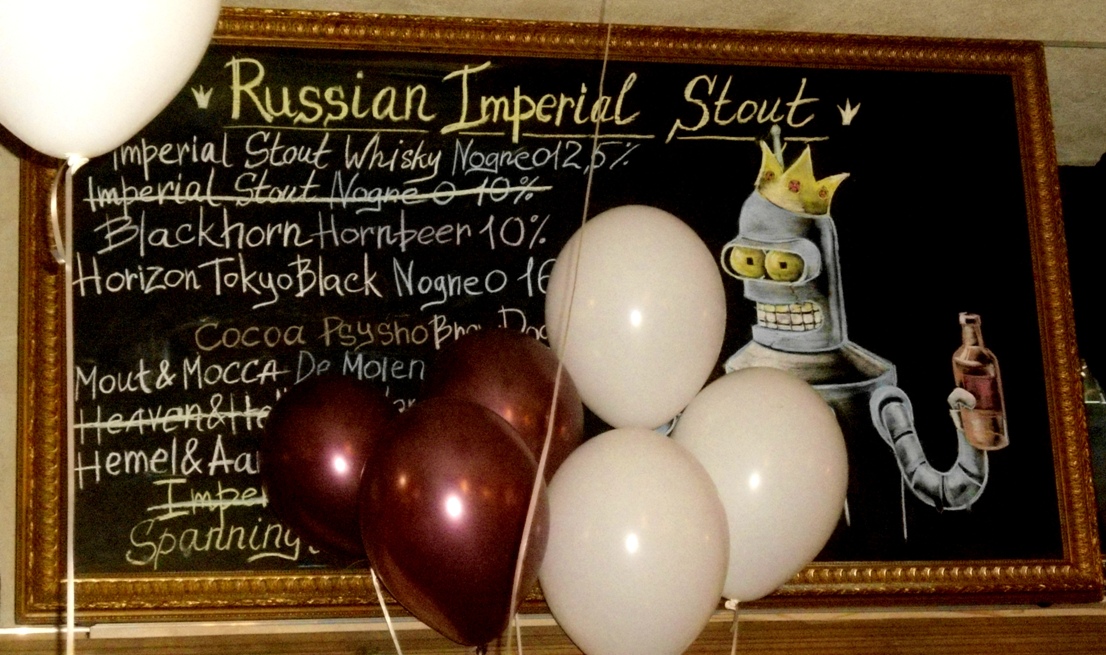 Russian Imperial Stout
Imperial Stout Whisky Nogne O 12,5%
Imperial Stout Nogne O 10%
Blackhorn Hornbeer 10%
Horizon Tokyo Black Nogne O 16
Cocoa Psysho Brew Dog
Mout & Mocca De Molen
Heaven & He
Hemel & Aa
Impe
Spanning